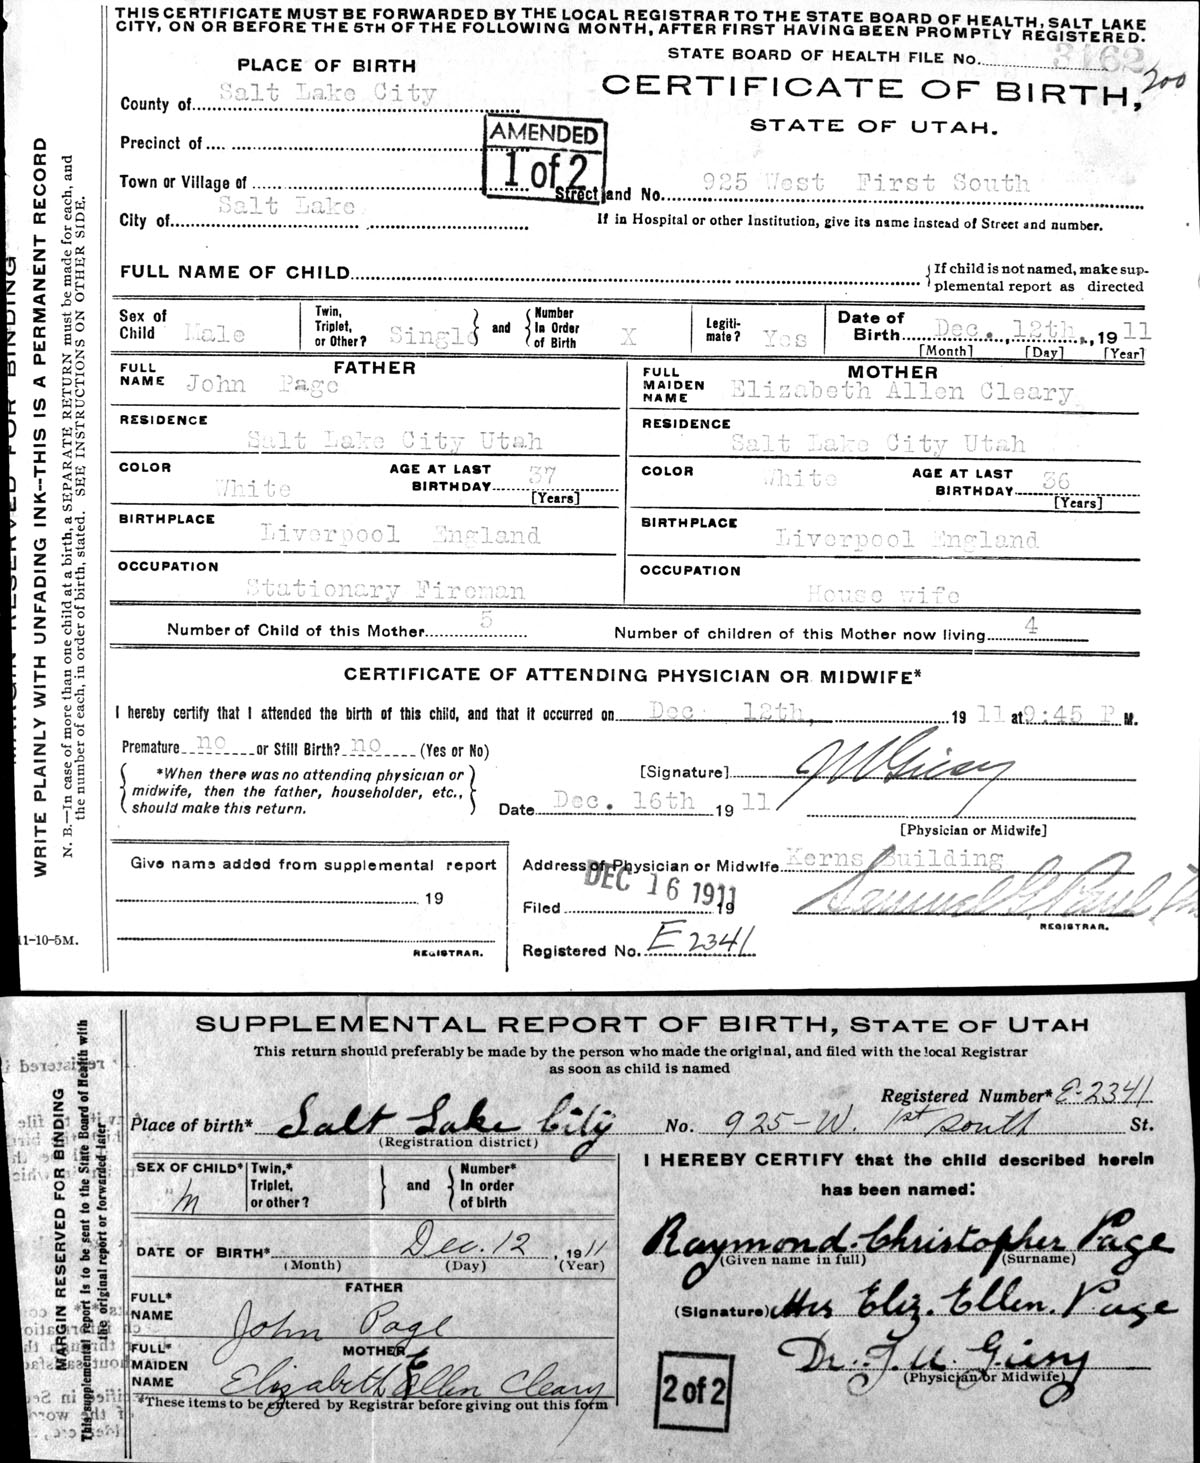 THIS CERTIFICATE MUST BE FORWARDED BY THE LOCAL REGISTRAR TO THE STATE BOARD OF HEALTH, SALT LAKE
CITY, ON OR BEFORE THE 5TH OF THE FOLLOWING MONTH, AFTER FIRST HAVING BEEN PROMPTLY REGISTERED.
STATE BOARD OF HEALTH FILE No. 3162
200
PLACE OF BIRTH
CERTIFICATE OF BIRTH,
STATE OF UTAH.
County of Salt Lake City
AMENDED
1 of 2
Precinct of
Town or Village of
Street and No. 925 West First South
City of Salt Lake
If in Hospital or other Institution, give its name instead of Street and number.
FULL NAME OF CHILD
If child is not named, make sup-
plemental report as directed
Sex of Child Male
Twin, Triplet, or Other? Single
and
Number In Order of Birth X
Legiti-mate? Yes
Date of Birth Dec. 12th, 1911
[Month] [Day] [Year]
FATHER
FULL NAME John Page
RESIDENCE
Salt Lake City Utah
COLOR White
AGE AT LAST BIRTHDAY 37
[Years]
BIRTHPLACE
Liverpool England
OCCUPATION
Stationary Fireman
MOTHER
FULL MAIDEN NAME Elizabeth Allen Cleary
RESIDENCE
Salt Lake City Utah
COLOR White
AGE AT LAST BIRTHDAY 36
[Years]
BIRTHPLACE
Liverpool England
OCCUPATION
House wife
Number of Child of this Mother 5
Number of children of this Mother now living 4
CERTIFICATE OF ATTENDING PHYSICIAN OR MIDWIFE*
I hereby certify that I attended the birth of this child, and that it occurred on Dec 12th, 1911 at 9:45 P M.
Premature no or Still Birth? no (Yes or No)
*When there was no attending physician or
midwife, then the father, householder, etc.,
should make this return.
[Signature]
Date Dec. 16th 1911
[Physician or Midwife]
Give name added from supplemental report
19
REGISTRAR.
Address of Physician or Midwife Kerns Building
Filed DEC 16 1911 19
Samuel G Paul
REGISTRAR.
Registered No. E 2341
MARGIN RESERVED FOR BINDING
WRITE PLAINLY WITH UNFADING INK--THIS IS A PERMANENT RECORD
N. B.—In case of more than one child at a birth, a SEPARATE RETURN must be made for each, and
the number of each, in order of birth, stated. SEE INSTRUCTIONS ON OTHER SIDE.
11-10-5M.
SUPPLEMENTAL REPORT OF BIRTH, STATE OF UTAH
This return should preferably be made by the person who made the original, and filed with the local Registrar
as soon as child is named
Registered Number* E-2341
Place of birth* Salt Lake City No. 925-W. 1st South St.
(Registration district)
SEX OF CHILD* M
Twin,* Triplet, or other?
and
Number* In order of birth
I HEREBY CERTIFY that the child described herein
has been named:
DATE OF BIRTH* Dec. 12, 1911
(Month) (Day) (Year)
Raymond Christopher Page
(Given name in full) (Surname)
FATHER
FULL* NAME John Page
(Signature) Mrs Eliz. Ellen. Page
MOTHER
FULL* MAIDEN NAME Elizabeth Ellen Cleary
(Physician or Midwife)
*These items to be entered by Registrar before giving out this form
2 of 2
MARGIN RESERVED FOR BINDING
This supplemental report is to be sent to the State Board of Health with
the original report or forwarded later